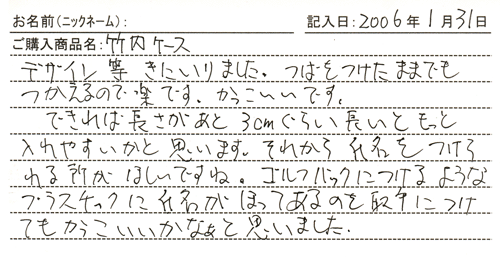 お名前(ニックネーム): 記入日:2006年1月31日
ご購入商品名:竹内ケース
デザイン等きにいりました。つばをつけたままでも
つかえるので楽です。かっこいいです。
できれば長さがあと3cmぐらい長いともっと
入れやすいかと思います。それから氏名をつけら
れる所がほしいですね。ゴルフバックにつけるような
プラスチックに氏名がほってあるのを取手につけ
てもかっこいいかなぁと思いました。